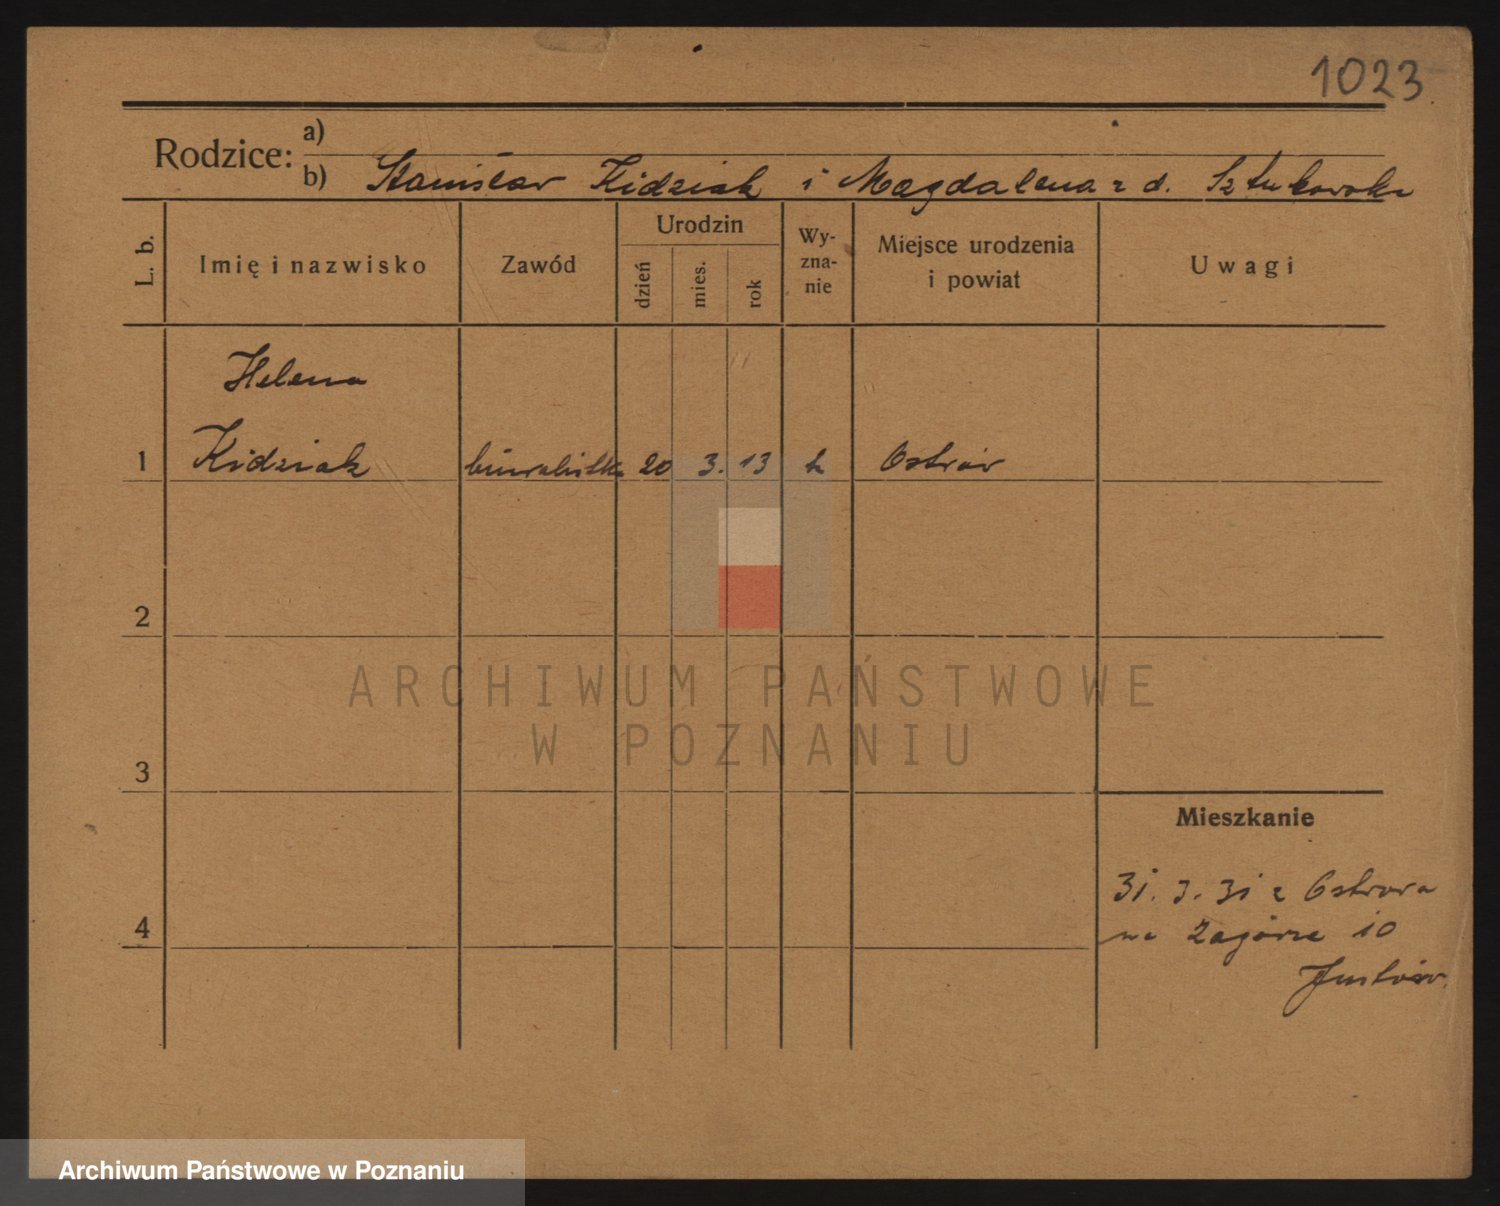 1023
Rodzice: a)
b) Stanisław Kidziak i Magdalena z d. Sztukowska
L. b. Imię i nazwisko Zawód Urodzin dzień mies. rok Wy-zna-nie Miejsce urodzenia i powiat Uwagi
Helena
1 Kidziak biuralistka 20 3. 13 k Ostrów
2
ARCHIWUM PAŃSTWOWE
W POZNANIU
3
Mieszkanie
31. 3. 31 z Ostrowa
4
na Zagórze 10
Archiwum Państwowe w Poznaniu